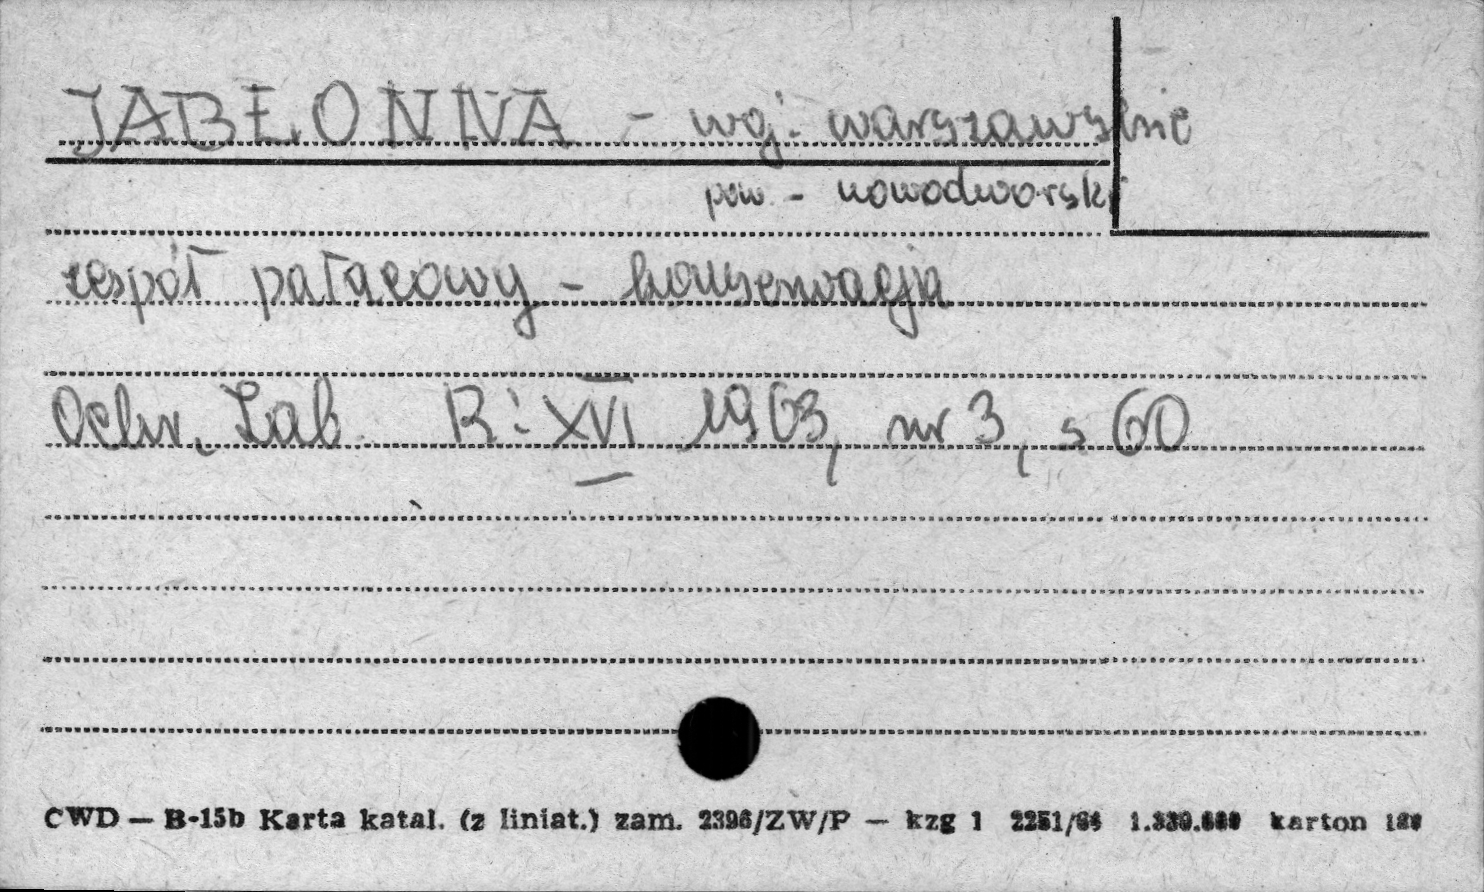 JABŁONNA - woj. warszawskie
pow. - nowodworski
zespół pałacowy - konserwacja
Ochr. Zab. R: XVI 1963, nr 3, s 60
CWD — B-15b Karta katal. (z liniat.) zam. 2396/ZW/P — kzg 1 karton